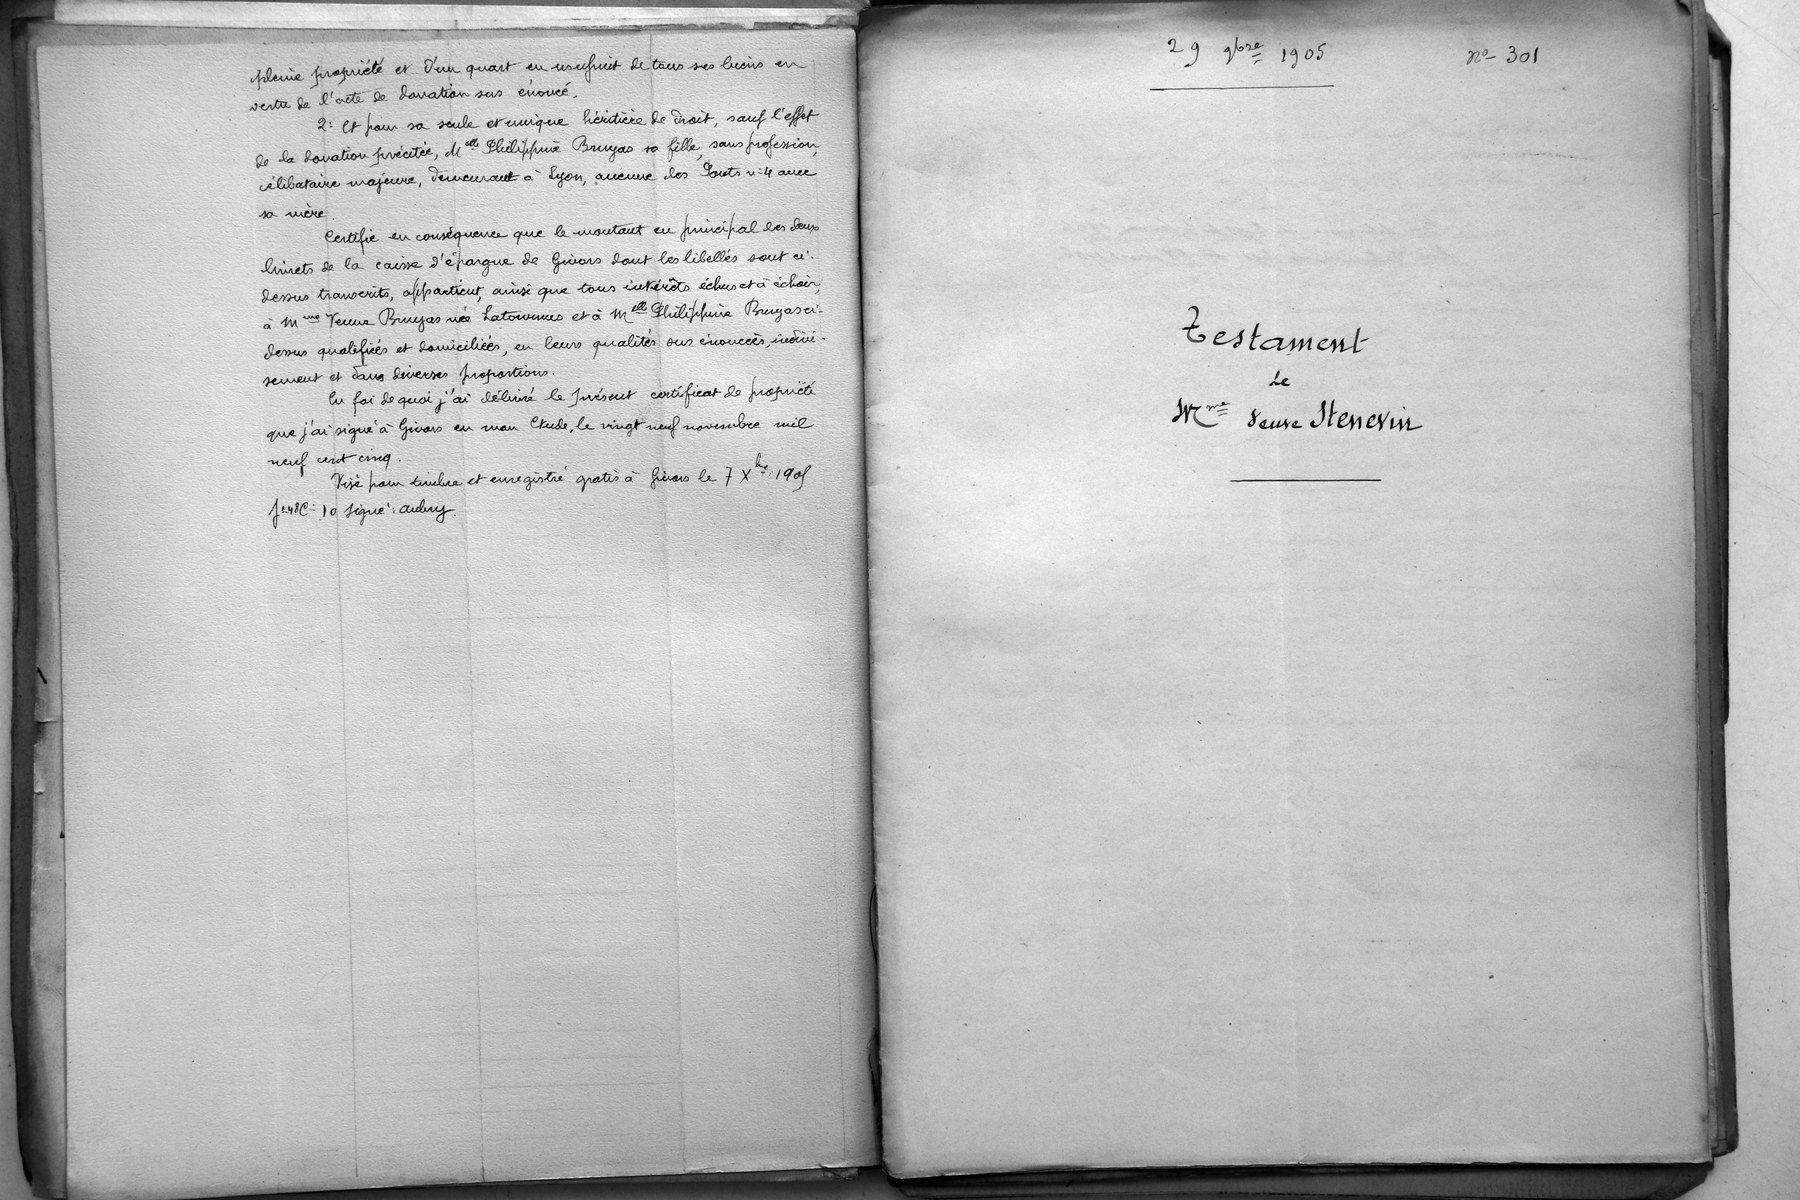 pleine propriété et d'un quart en usufruit de tous ses biens en
vertu de l'acte de donation sus énoncé.
2: Et pour sa seule et unique héritière de droit, sauf l'effet
de la donation précitée, Melle Philippine Bruyas sa fille, sans profession,
célibataire majeure, demeurant à Lyon, avenue des Ponts n: 4 avec
sa mère.
Certifie en conséquence que le montant en principal des deux
livrets de la caisse d'épargne de Givors dont les libellés sont ci-
dessus transcrits, appartient, ainsi que tous intérêts échus et à échoir,
à Mme Veuve Bruyas née et à Melle Philippine Bruyas ci-
dessus qualifiés et domiciliées, en leurs qualités sus énoncées, indivi-
sement et dans diverses proportions.
En foi de quoi j'ai délivré le présent certificat de propriété
que j'ai signé à Givors en mon Etude, le vingt neuf novembre mil
neuf cent cinq.
Visé pour timbre et enregistré gratis à Givors le 7 Xbre 1905
fo 48 C: 10 Signé: Aubry.
29 9bre 1905
no 301
Testament
de
Mme Veuve Stenevin